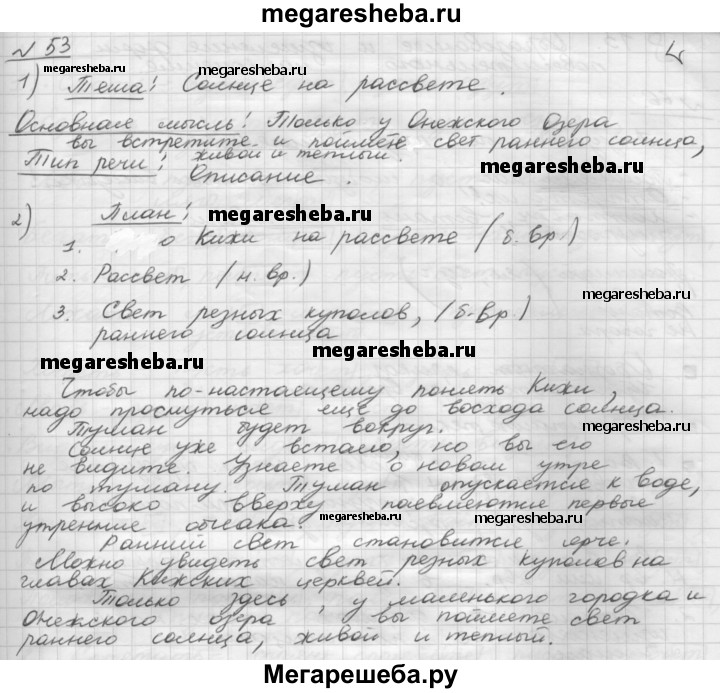 megaresheba.ru
№ 53
4
1) Тема: Солнце на рассвете.
megaresheba.ru
megaresheba.ru
Основная мысль: Только у Онежского Озера
вы встретите и поймёте свет раннего солнца,
живой и тёплый.
megaresheba.ru
Тип речи: Описание.
2) План:
megaresheba.ru
1. о Кижи на рассвете (б. вр.)
2. Рассвет (н. вр.)
megaresheba.ru
3. Свет резных куполов, (б. вр.)
раннего солнца
megaresheba.ru
megaresheba.ru
Чтобы по-настаещему понять Кижи,
надо проснуться ещё до восхода солнца.
Туман будет вокруг.
megaresheba.ru
Солнце уже встало, но вы его
не видите. Узнаете о новом утре
по туману. Туман опускается к воде,
и высоко вверху появляются первые
утренние облака.
megaresheba.ru
megaresheba.ru
Ранний свет становится ярче.
Можно увидеть свет резных куполов на
главах Кижских церквей.
Только здесь, у маленького городка и
Онежского озера вы поймете свет
раннего солнца, живой и тёплый.
Мегарешеба.ру